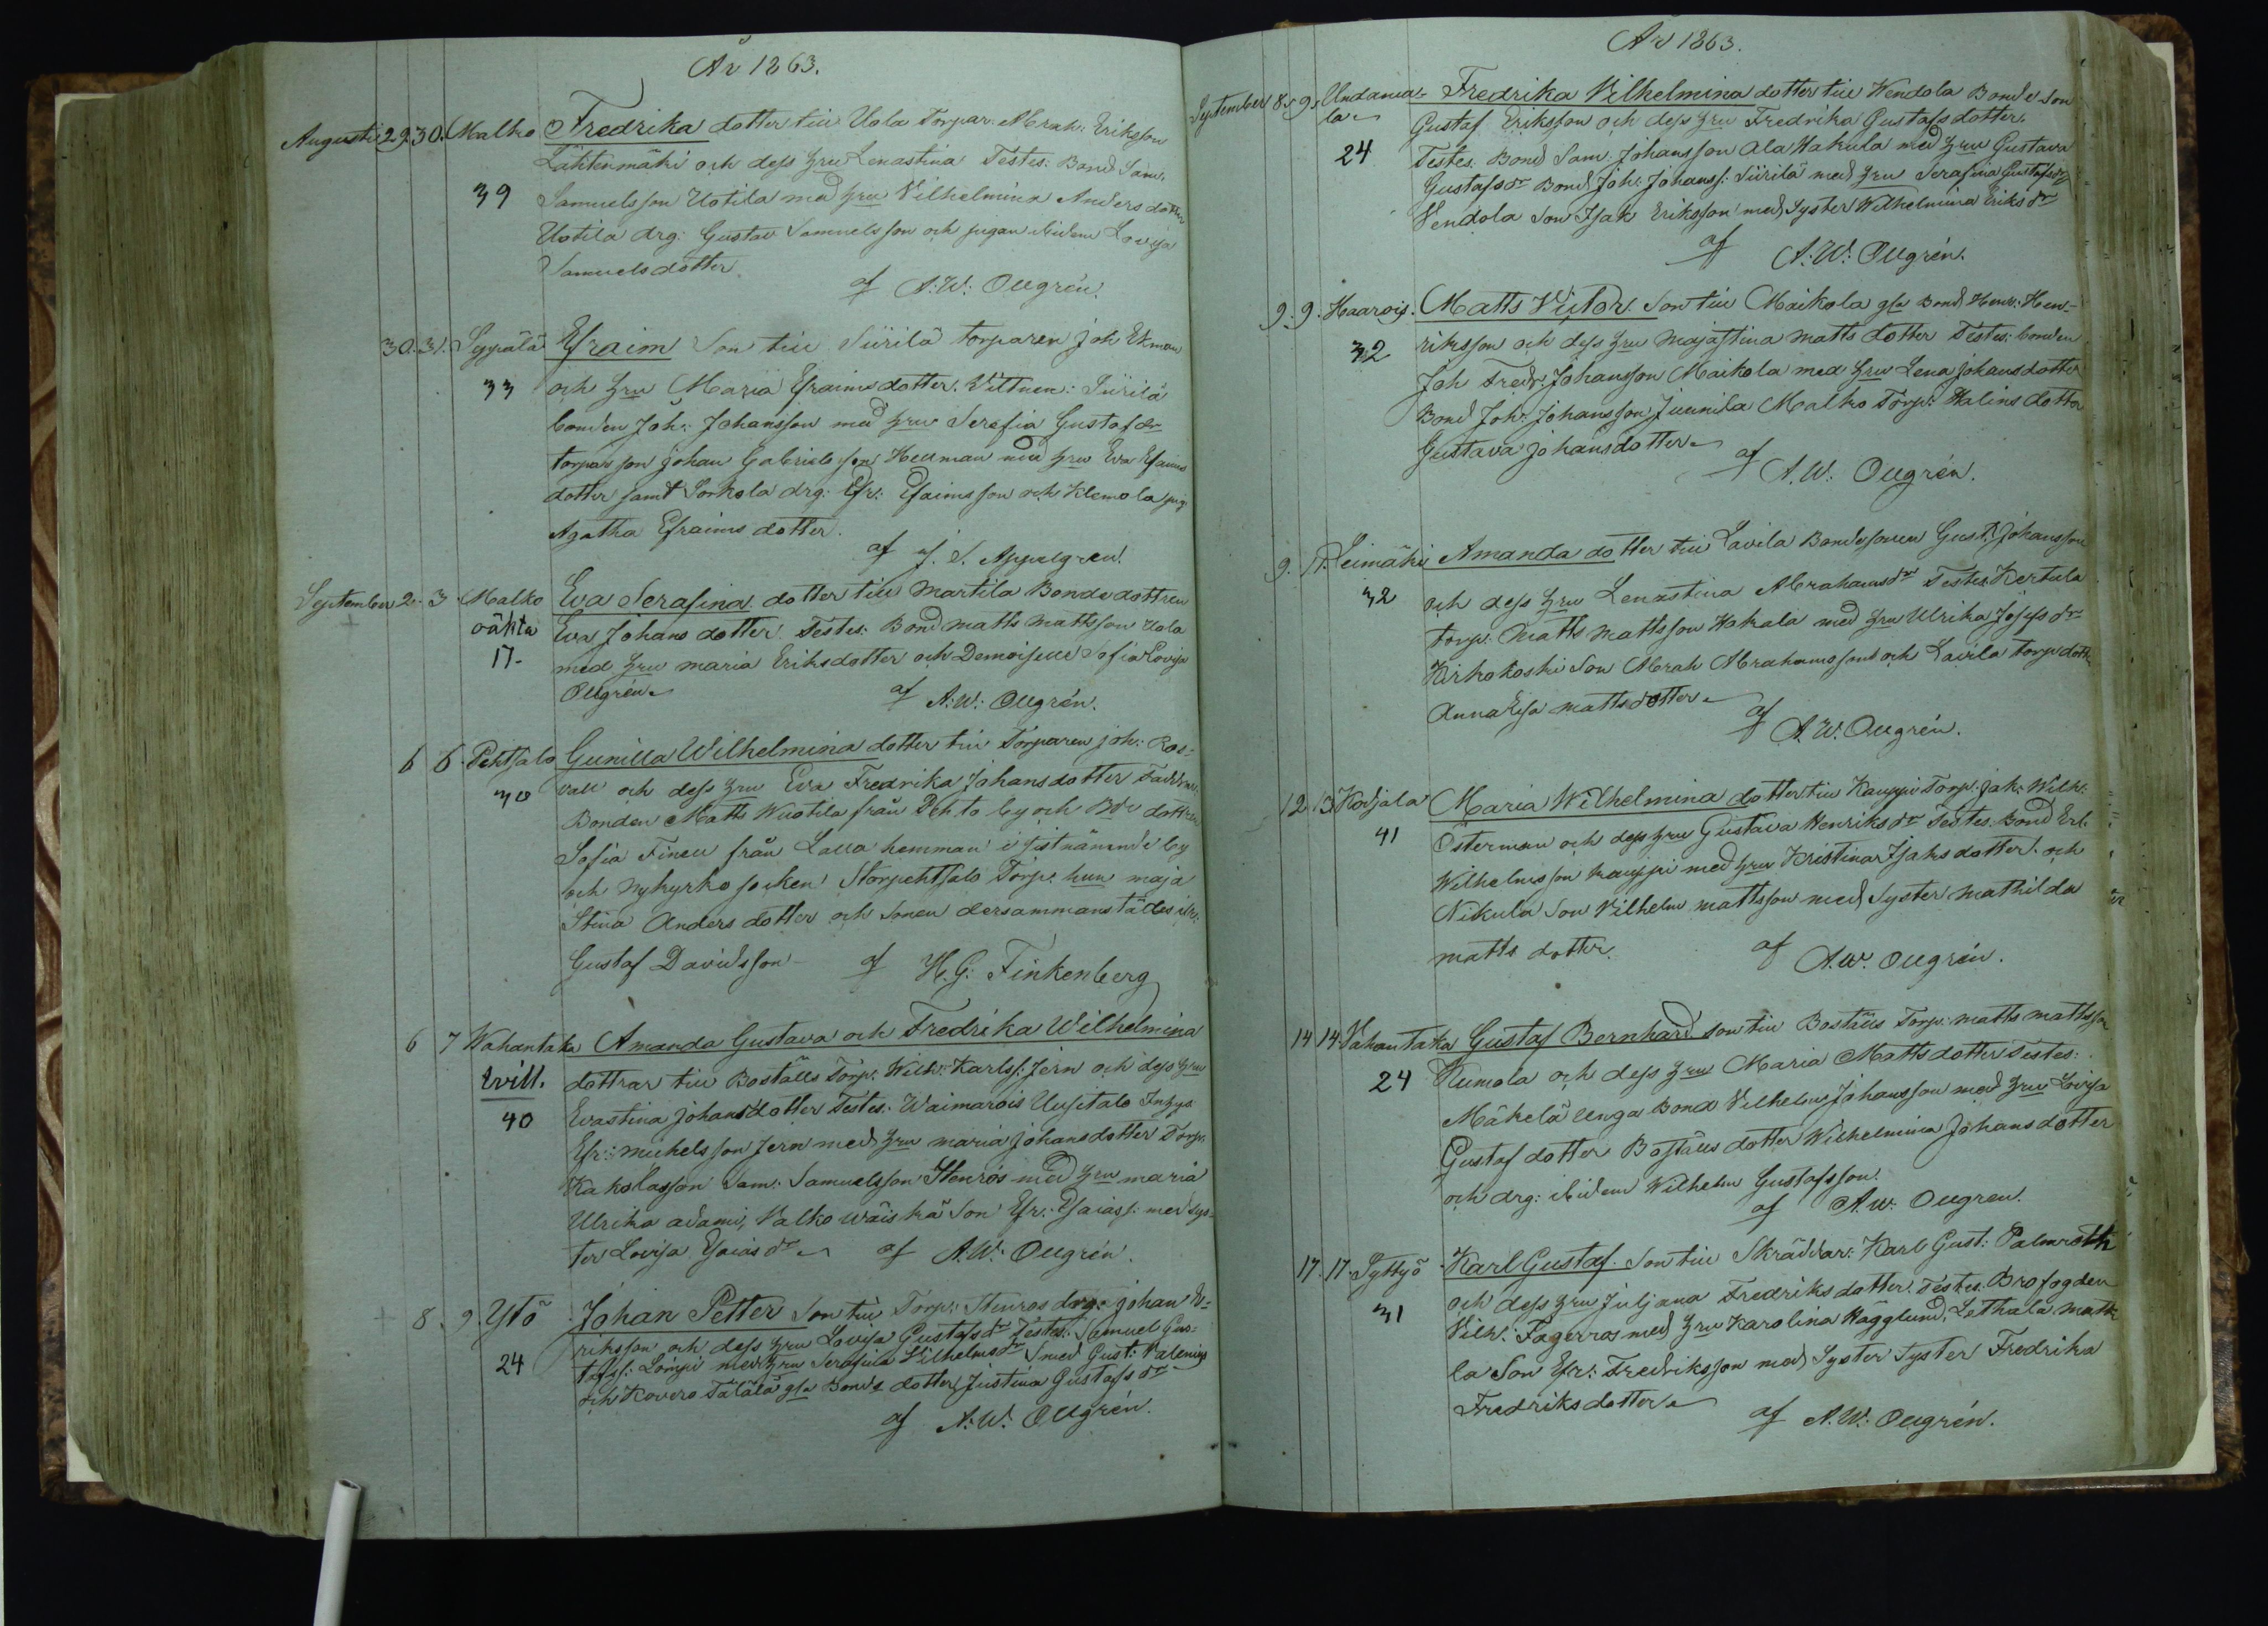 År 1863.
Augusti 29. 30. Malko Fredrika dotter till Uola Torpar. Abrah: Eriksson
Lähtinmäki och dess hru Lenastina Testes: Bond Sam:
39 Samuelsson Uotila med hru Vilhelmina Anders dotter
Uotila drg: Gustav Samuelsson och pigan ibidem Lovisa
Samuelsdotter.
af A: W: Ollgrén.
30. 31. Seppälä Efraim Son till Siirilä torparen Joh Ekman
33 och hru Maria Efraimsdotter. Vittnen: Siirilä
bonden Joh: Johansson med hru Serafia Gustafdr
torpar son Johan Gabrielsson Hellman med hru Eva Efraims
dotter samt Sorkola drg: Efr: Efaimsson och Klemola pig
Agatha Efraims dotter.
af J. S. Appelgren.
September 2. 3. Malko Eva Serafina dotter till Martila Bonde dottren
+ oäkta Eva Johans dotter. Testes: Bond Matts Mattsson Uola
17. med hru Maria Eriksdotter och Demoiselle Sofia Lovisa
Ollgrén. af A: W: Ollgrén.
6 6. Pehtsalo Gunilla Wilhelmina dotter till Torparen Joh: Ros=
30 vall och dess hru Eva Fredrika Johansdotter Faddrar:
Bonden Matts Wuotila från Pehto by och Bde dottren
Sofia Finell från Lalla hemman i sistnämnde by
och Nykyrko socken Storpehtsalo Torp: hun Maja
Stina Anders dotter och Sonen dersammanstädes
Gustaf Davidsson af H. G: Finkenberg
6 7 Wahantaka Amanda Gustava och Fredrika Wilhelmina
tvill. dottrar till Boställs Torp: Wilh: Karlss: Jern och dess hru
40 Evastina Johans dotter Testes: Waimarois Uusitalo Inhys
Efr: Michelsson Jern med hru Maria Johansdotter Torp:
Kakolasson Sam: Samuelsson Stenros med hru Maria
Ulrika Adami, Valko Wäiskä Son Efr: Esaiass: med Sys-
ter Lovisa Esaias dr af A: W: Ollgrén.
+ 8. 9. Ytö Johan Petter Son till Torp: Stenros drg: Johan E-
riksson och dess hru Lovisa Gustafs dr Testes: Samuel Gus-
24 tafss: Lömpi med hru Serafina Vilhelmsdr Smed Gust: Valenius
och Kovero Tälälä gla Bonds dotter Justina Gustafs dr
af A: W: Ollgrén.
År 1863.
September 8. 9. Undama- Fredrika Vilhelmina dotter till Wendola Bonde son
la. Gustaf Eriksson och dess hru Fredrika Gustafs dotter.
24 Testes: Bond Sam: Johansson Ala Hakula med hru Gustava
Gustafs dr Bond Joh: Johanss: Siirilä med hru Serafina Gustafsdr
Vendola Son Isak Eriksson med Syster Wilhelmina Eriks dr
af A: W: Ollgrén.
9. 9. Haarois. Matts Victor. Son till Maikola gla Bond Henr: Hen-
32 riksson och dess hru Majastina Matts dotter Testes: bonden
Joh Fredr: Johansson Maikola med hru Lena Johansdotter
Bond Joh: Johansson Junnila Malko Torp: Halins dotter
Gustava Johansdotter.
af A. W: Ollgrén.
9. 11. Leimäki Amanda dotter till Lavila Bondesonen Gust: Johansson
32 och dess hru Lenastina Abrahams dr Testes: Kertula
torp: Matts Mattsson Hakala med hru Ulrika Josefs dr
Kirkokoski Son Abrah Abrahamsson och Lavila torp dotter
Anna Lisa Mattsdotter
af A. W: Ollgrén.
12. 13. Kodjala Maria Wilhelmina dotter till Kauppi Torp: Jak: Wilh:
41 Österman och dess hru Gustava Henriks dr Testes. Bond Erl.
Wilhelmsson Kauppi med hru Kristina Isaks dotter. och
Nikula Son Vilhelm Mattsson med Syster Mathilda
Matts dotter. af A. W. Ollgrén.
14 14. Vahantaka Gustaf Bernhard son till Boställs Torp: Matts Mattsson
24 Kumola och dess hru Maria Matts dotter Testes:
Mäkelä unga Bond Vilhelm Johansson med hru Lovisa
Gustaf dotter Boställs dotter Wilhelmina Johans dotter
och drg: ibidem Wilhelm Gustafsson.
af A. W: Ollgren.
17. 17. Syttyö Karl Gustaf. Son till Skräddar: Karl Gust: Palmroth
31 och dess hru Juljana Fredriks dotter. Testes. Brofogden
Vilh: Fagerros med hru Karolina Hägglund, Lethala Matti
la Son Efr: Fredriksson med Syster Syster Fredrika
Fredriksdotter.
af A. W: Ollgrén.